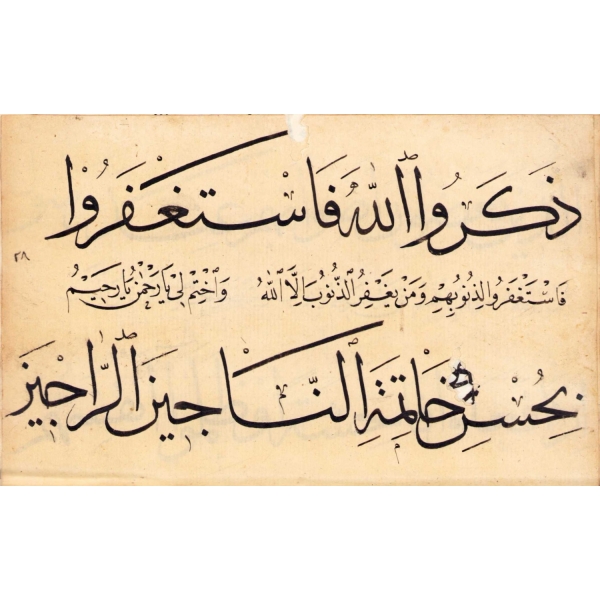 ذَكَرُوا اللّٰهَ فَاسْتَغْفَرُوا
٢٨
فَاسْتَغْفَرُوا لِذُنُوبِهِمْ وَمَنْ يَغْفِرُ الذُّنُوبَ اِلَّا اللّٰهُ وَاخْتِمْ لِي يَا رَحْمٰنُ يَا رَحِيمُ
بِحُسْنِ خَاتِمَةِ النَّاجِينَ الرَّاجِينَ